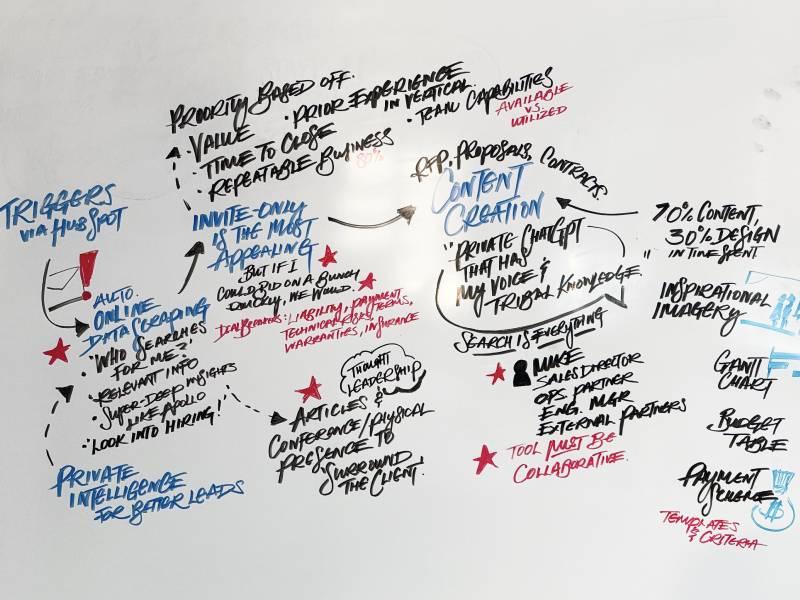 PRIORITY BASED OFF:
• VALUE
• TIME TO CLOSE
• REPEATABLE BUSINESS
80%
• PRIOR EXPERIENCE
IN VERTICAL
• TEAM CAPABILITIES
AVAILABLE
VS.
UTILIZED
TRIGGERS
VIA HUBSPOT
AUTO.
ONLINE
DATA SCRAPING
• "WHO SEARCHES
FOR ME?"
• RELEVANT INFO
• SUPER-DEEP INSIGHTS
LIKE APOLLO
• "LOOK INTO HIRING!"
PRIVATE
INTELLIGENCE
FOR BETTER LEADS
INVITE-ONLY
IS THE MOST
APPEALING
BUT IF I
COULD BID ON A BUNCH
QUICKLY, WE WOULD.
DEALBREAKERS: LIABILITY, PAYMENT
TECHNICAL RISKS, TERMS,
WARRANTIES, INSURANCE
THOUGHT
LEADERSHIP
ARTICLES &
CONFERENCE/PHYSICAL
PRESENCE TO
SURROUND
THE CLIENT.
RFP, PROPOSALS, CONTRACTS.
CONTENT
CREATION
"PRIVATE CHATGPT
THAT HAS
MY VOICE &
TRIBAL KNOWLEDGE."
SEARCH IS EVERYTHING
MIKE
SALES DIRECTOR
OPS PARTNER
ENG. MGR
EXTERNAL PARTNERS
TOOL MUST BE
COLLABORATIVE.
70% CONTENT,
30% DESIGN
IN TIME SPENT
INSPIRATIONAL
IMAGERY
GANTT
CHART
BUDGET
TABLE
PAYMENT
SCHEME
$
TEMPLATES
& CRITERIA